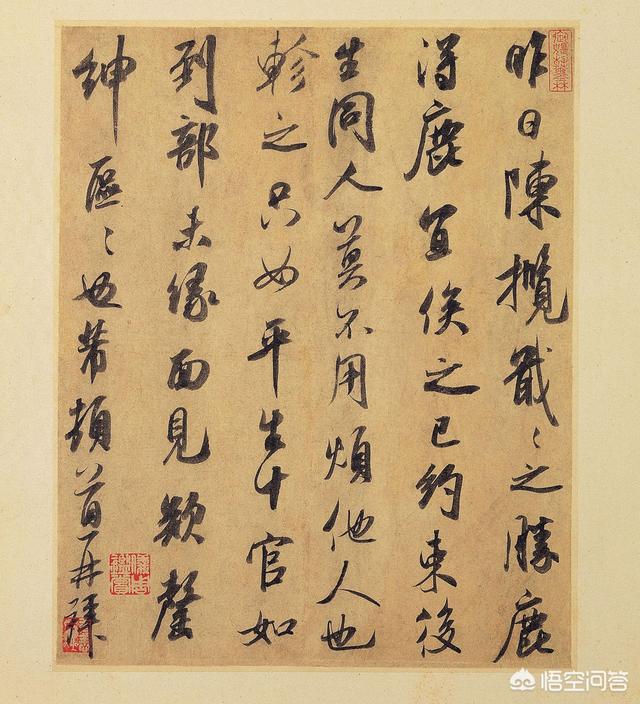 昨日陳攬戢〻之勝鹿
得鹿宜俟之已約束後
生同人莫不用煩他人也
軫之只如平生十官如
到部未緣面見欵罄
紳區〻也芾頓首再拜
悟空问答